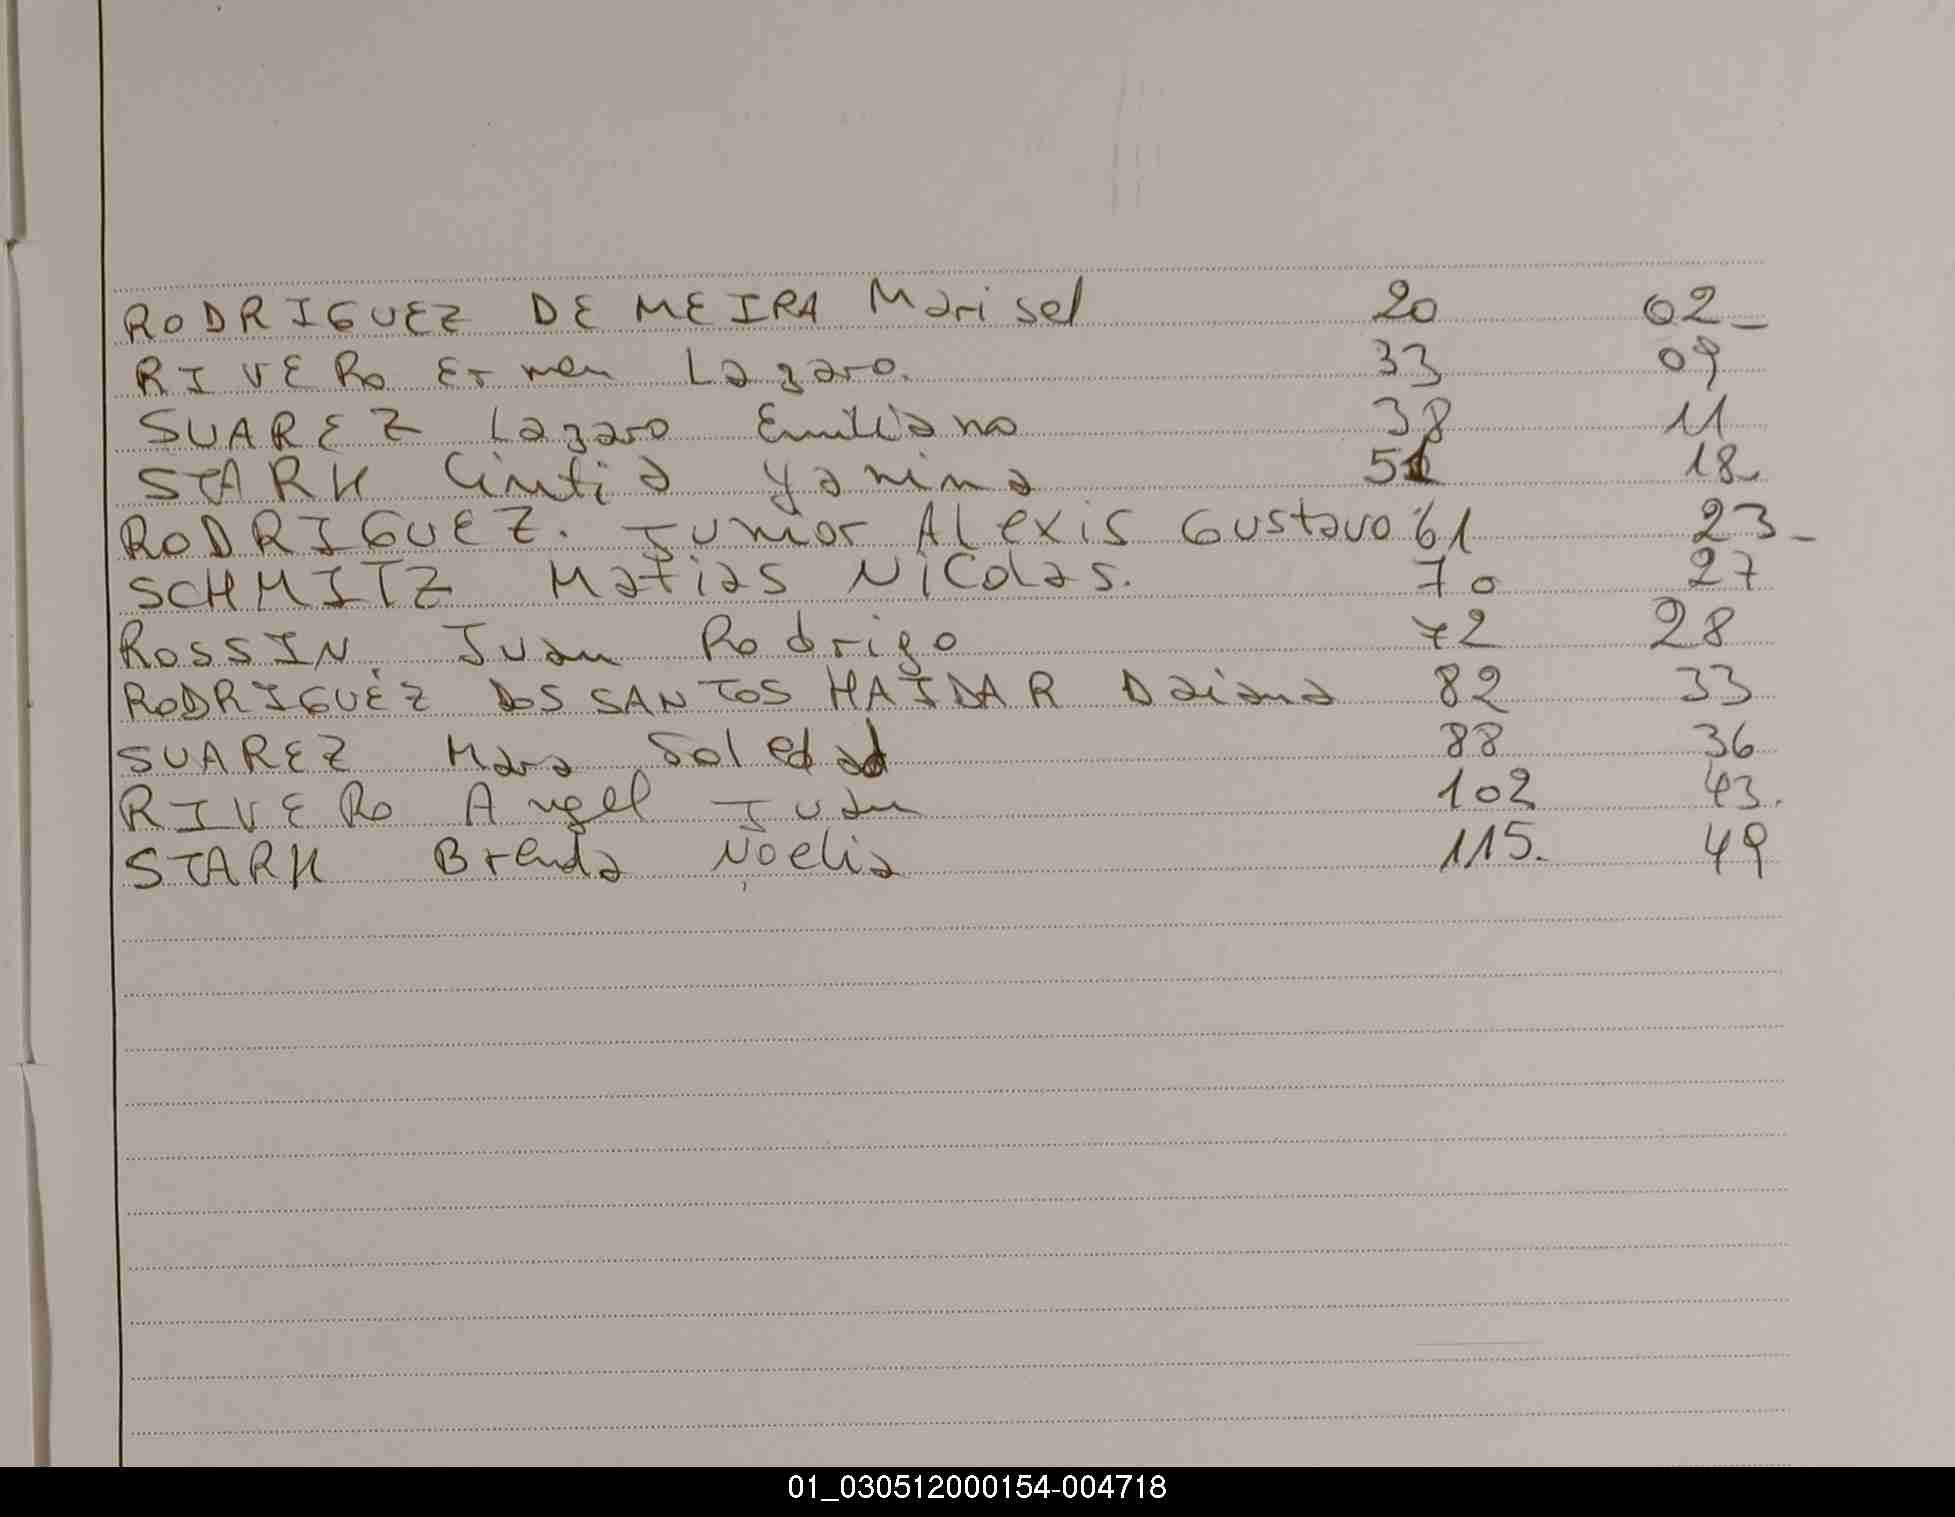 RODRIGUEZ DE MEIRA Marisel 20 02_
RIVERO Ermen Lazaro. 33 09
SUAREZ Lazaro Emiliano 38 11
STARK Cintia Yanina 51 18.
RODRIGUEZ. Junior Alexis Gustavo 61 23_
SCHMITZ Matias Nicolas. 70 27
ROSSIN. Juan Rodrigo 72 28
RODRIGUEZ DOS SANTOS HAIDAR Daiana 82 33
SUAREZ Mara Soledad 88 36
RIVERO Angel Juan 102 43.
STARK Brenda Noelia 115. 49
01_030512000154-004718